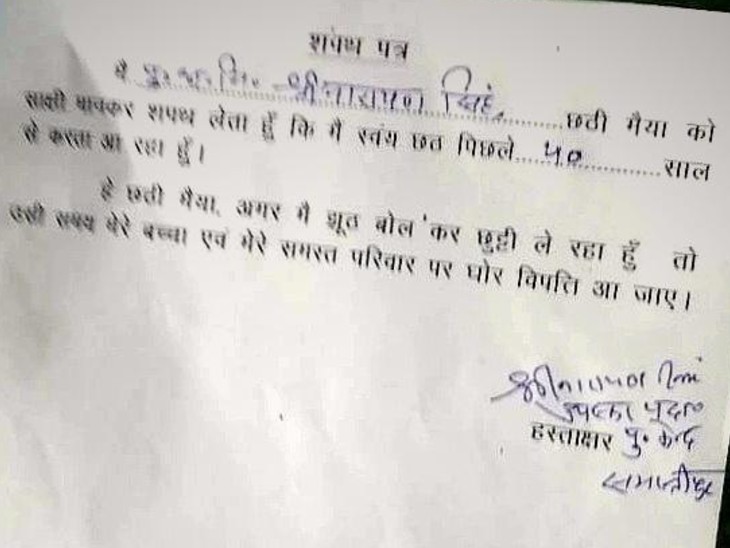 शपथ पत्र
मै पु. अ. नि. श्रीनारायण सिंह, ............छठी मैया को
साक्षी मानकर शपथ लेता हूँ कि मै स्वंय छठ पिछले.....५०............साल
से करता आ रहा हूँ।
हे छठी मैया, अगर मै झूठ बोल'कर छुट्टी ले रहा हूँ तो
उसी समय मेरे बच्चा एवं मेरे समस्त परिवार पर घोर विपत्ति आ जाए।
श्रीनारायण सिंह
हस्ताक्षर पु. केन्द्र